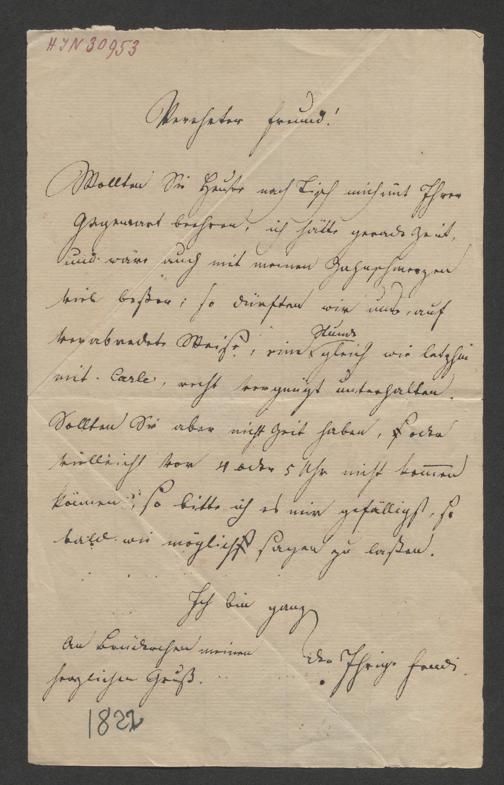 HIN 30953
Verehrter Freund!
Wollten Sie Heute nach Tisch mich mit Ihrer
Gegenwart beehren, ich hätte gerade Zeit,
und wäre auch mit meinen Zahnschmerzen
viel beßer; so dürften wir uns, auf
verabredete Weise, eine Stunde gleich wie letzthin
mit Carle, recht vergnügt unterhalten.
Sollten Sie aber nicht Zeit haben, oder
vielleicht vor 4 oder 5 Uhr nicht kommen
können, so bitte ich es mir gefälligst, so
bald wie möglich sagen zu laßen.
Ich bin ganz
der Ihrige Fendi
An Brüderchen meinen
herzlichen Gruß.
1822